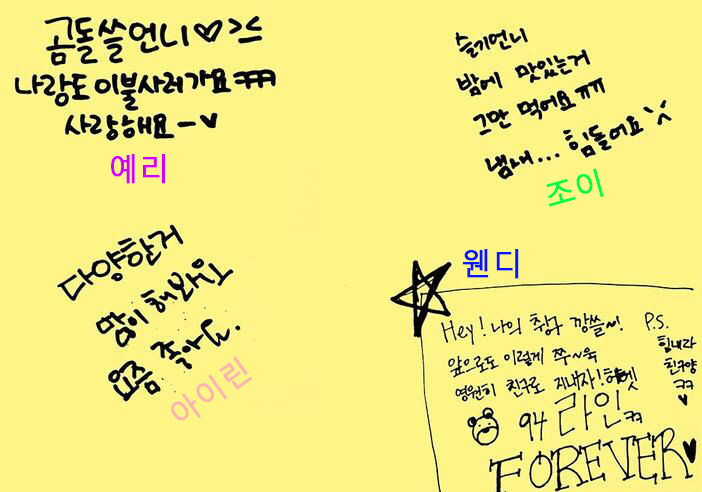 곰돌쓸언니♡>ㅅ
나랑도 이불사러가요ㅋㅋㅋ
사랑해요ㅡ♥
예리
슬기언니
밤에 맛있는거
그만 먹어요ㅠㅠ
냄새... 힘들어요
조이
다양한거
많이 해봐요
요즘 좋아
아이린
웬디
Hey! 나의 친구 깡쓸~!
앞으로도 이렇게 쭈~욱
영원히 친구로 지내자!
94 라인ㅋㅋ
FOREVER♥
P.S.
힘내라
친구양
ㅋㅋ
♥